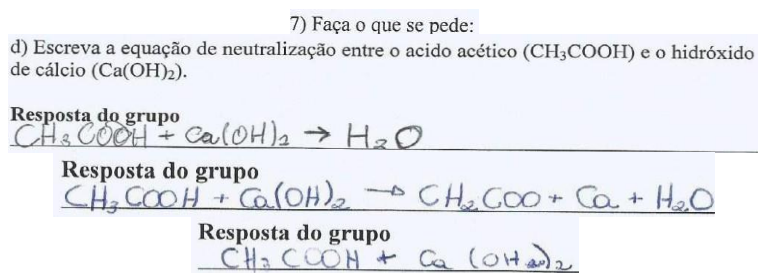 7) Faça o que se pede:
d) Escreva a equação de neutralização entre o acido acético (CH₃COOH) e o hidróxido
de cálcio (Ca(OH)₂).
Resposta do grupo
CH₃COOH + Ca(OH)₂ → H₂O
Resposta do grupo
CH₃COOH + Ca(OH)₂ → CH₂COO + Ca + H₂O
Resposta do grupo
CH₃COOH + Ca (OH)₂